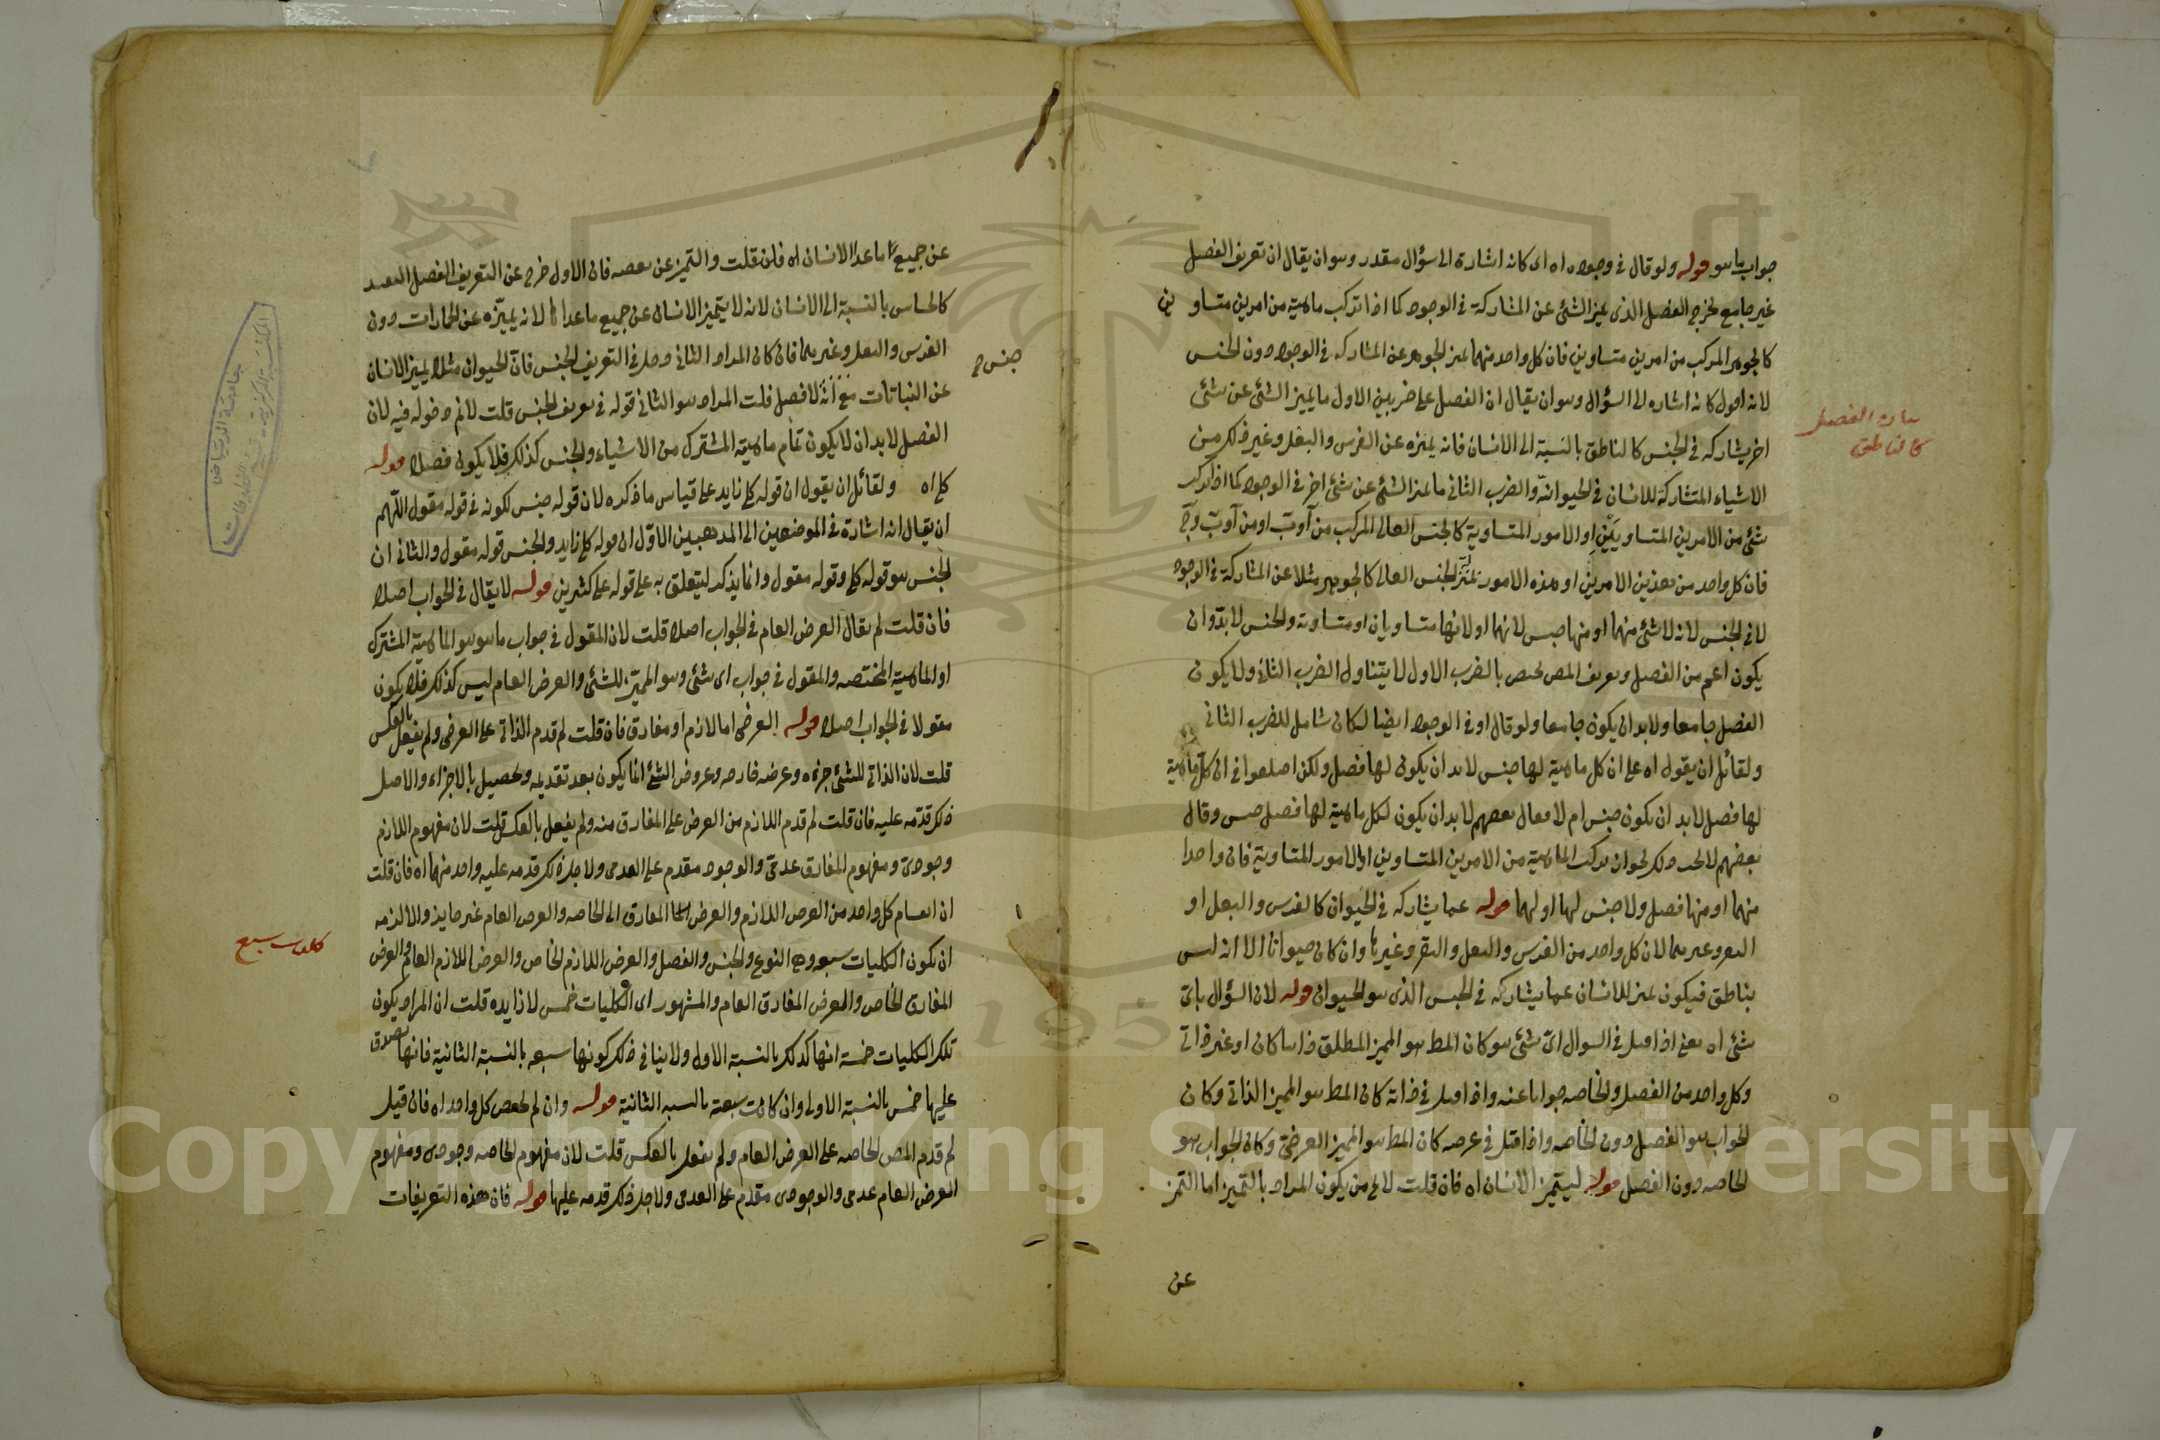 جواب ما هو قوله ولو قال في وجوده اه اى كانه اشارة الى سؤال مقدر وهو ان يقال ان تعريف الفصل
غير جامع لخرج الفصل الذى يميز الشئ عن المشاركة في الوجود كما اذا تركب ماهية من امرين متساو ين
كالجوهر المركب من امرين متساوين فان كل واحد منهما يميز الجوهر عن المشاركه في الوجود دون الجنس
لانه اقول كانه اشاره الى السؤال وهو ان يقال ان الفصل على ضربين الاول ما يميز الشئ عن شئ
اخر يشاركه في الجنس كالناطق بالنسبة الى الانسان فانه يميزه عن الفرس والبغل وغير ذلك من
الاشياء المتشاركة للانسان في الحيوانية والضرب الثانى ما يميز الشئ عن شئ اخر في الوجود كما اذا تركب
شئ من الامرين المتساويين او الامور المتساوية كالجنس العالى المركب من آ وب او من آ وب وج
فان كل واحد من هذين الامرين او هذه الامور تميز الجنس العالى كالجوهر مثلا عن المشاركة في الوجود
لا في الجنس لانه لا شئ منهما او منها جنس لانهما او لانها متساويان او متساوية والجنس لا بد وان
يكون اعم من الفصل وتعريف المص مختص بالضرب الاول لا يتناول الضرب الثانى ولا يكون
الفصل جامعا ولا بد ان يكون جامعا ولو قال او في الوجود ايضا لكان شامل للضرب الثانى
ولقائل ان يقول اه على ان كل ماهية لها جنس لابد ان يكون لها فصل ولكن اختلفوا في ان كل ماهية
لها فصل لابد ان يكون جنس ام لا فقال بعضهم لابد ان يكون لكل ماهية لها فصل جنس وقال
بعضهم لا يجب ذلك لجواز تركب الماهية من الامرين المتساوين او الامور المتساوية فان واحدا
منهما او منها فصل ولا جنس لها او لهما قوله عما يشاركه في الحيوان كالفرس والبغل او
البقر وغيرهما لان كل واحد من الفرس والبغل والبقر وغيرها وان كان حيوانا الا انه ليس
بناطق فيكون يميز للانسان عما يشاركه في الجنس الذى هو الحيوان قوله لان السؤال باى
شئ اه يعنى اذا قيل في السوال اى شئ هو كان المط هو المميز المطلق ذاتيا كان او غير ذاتى
وكل واحد من الفصل والخاصه جوابا عنه واذا قيل في ذاته كان المط هو المميز الذاتى وكان
الجواب هو الفصل دون الخاصه واذا قيل في عرضه كان المط هو المميز العرضى وكان الجواب هو
الخاصه دون الفصل قوله ليتميز الانسان اه فان قلت لا يخ من يكون المراد بالتميز اما التميز
عن
بيان الفصل
كالناطق
عن جميع ما عدا الانسان اه فان قلت والتميز عن بعضه فان الاول خرج عن التعريف الفصل البعيد
كالحساس بالنسبة الى الانسان لانه لا يتميز الانسان عن جميع ما عداها لانه يميزه عن الجمادات دون
الفرس والبغل وغيرهما فان كان المراد الثانى دخل في التعريف الجنس فان الحيوان مثلا يميز الانسان
جنس ح
عن النباتات مع انه لا فصل قلت المراد هو الثانى قوله في تعريف الجنس قلت لا نم دخوله فيه لان
الفصل لابد ان لا يكون تمام ماهية المشترك من الاشياء والجنس كذلك فلا يكون فصلا قوله
كلى اه ولقائل ان يقول ان قوله كلى زايد على قياس ما ذكره لان قوله جنس لكونه في قوله مقول اللهم
ان يقال انه اشارة في الموضعين الى المذهبين الاول ان قوله كلى زايد والجنس قوله مقول والثانى ان
الجنس هو قوله كلى وقوله مقول وانما يذكر ليتعلق به على قوله على كثيرين قوله لا يقال في الجواب اصلا
فان قلت لم يقال العرض العام في الجواب اصلا قلت لان المقول في جواب ما هو هو الماهية المشترك
او الماهية المختصه والمقول في جواب اى شئ وهو المميز للشئ والعرض العام ليس كذلك فلا يكون
مقولا في الجواب اصلا قوله العرضى اما لازم او مفارق فان قلت لم قدم الذاتى على العرضى ولم يفعل بالعكس
قلت لان الذاتى للشئ جزءه وعرضه خارجه وعروض الشئ انما يكون بعد تقديمه وتحصيل بالاجزاء والاصل
ذلك قدمه عليه فان قلت لم قدم اللازم من العرض على المفارق منه ولم يفعل بالعكس قلت لان مفهوم اللازم
وجودى ومفهوم المفارق عدمى والوجود مقدم على العدمى ولاجل ذلك قدمه عليه واحد منهما اه فان قلت
ان انقسام كل واحد من العرض اللازم والعرض المفارق الى الخاصه والعرض العام غير جايز والا لزمه
ان يكون الكليات سبعه وهى النوع والجنس والفصل والعرض اللازم الخاص والعرض اللازم العام والعرض
المفارق الخاص والعرض المفارق العام والمشهور ان الكليات خمس لا زايده قلت ان المراد بكون
تلك الكليات خمسة انها كذلك بالنسبة الاول ولا ينافى ذلك كونها سبعه بالنسبة الثانية فانها تصدق
عليها خمس بالنسبة الاولى وان كانت سبعة بالنسبه الثانية قوله وان لم يختص كل واحد اه فان قيل
لم قدم المص الخاصه على العرض العام ولم يفعل بالعكس قلت لان مفهوم الخاصه وجودى ومفهوم
العرض العام عدمى والوجودى مقدم على العدمى ولاجل ذلك قدمه عليها قوله فان هذه التعريفات
كليات سبع
Copyright © King Saud University
1957